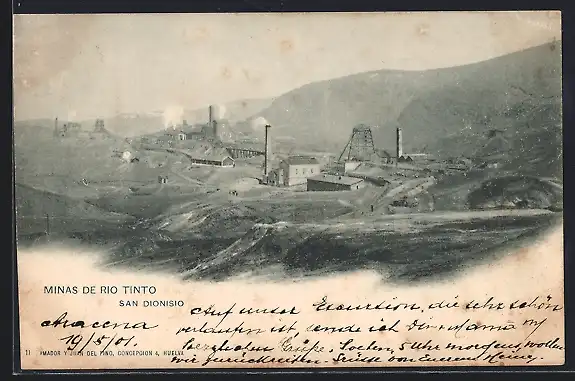 MINAS DE RIO TINTO
SAN DIONISIO
Aracena
19/5/01.
Auf unser Excursion, die sehr schön
verlaufen ist, sende ich Dir u. Mama
herzlichen Grüße. Soeben, 5 Uhr morgens, wollen
wir zurückreiten. Grüße von Eurem
11 AMADOR Y JUAN DEL PINO, CONCEPCION 4, HUELVA